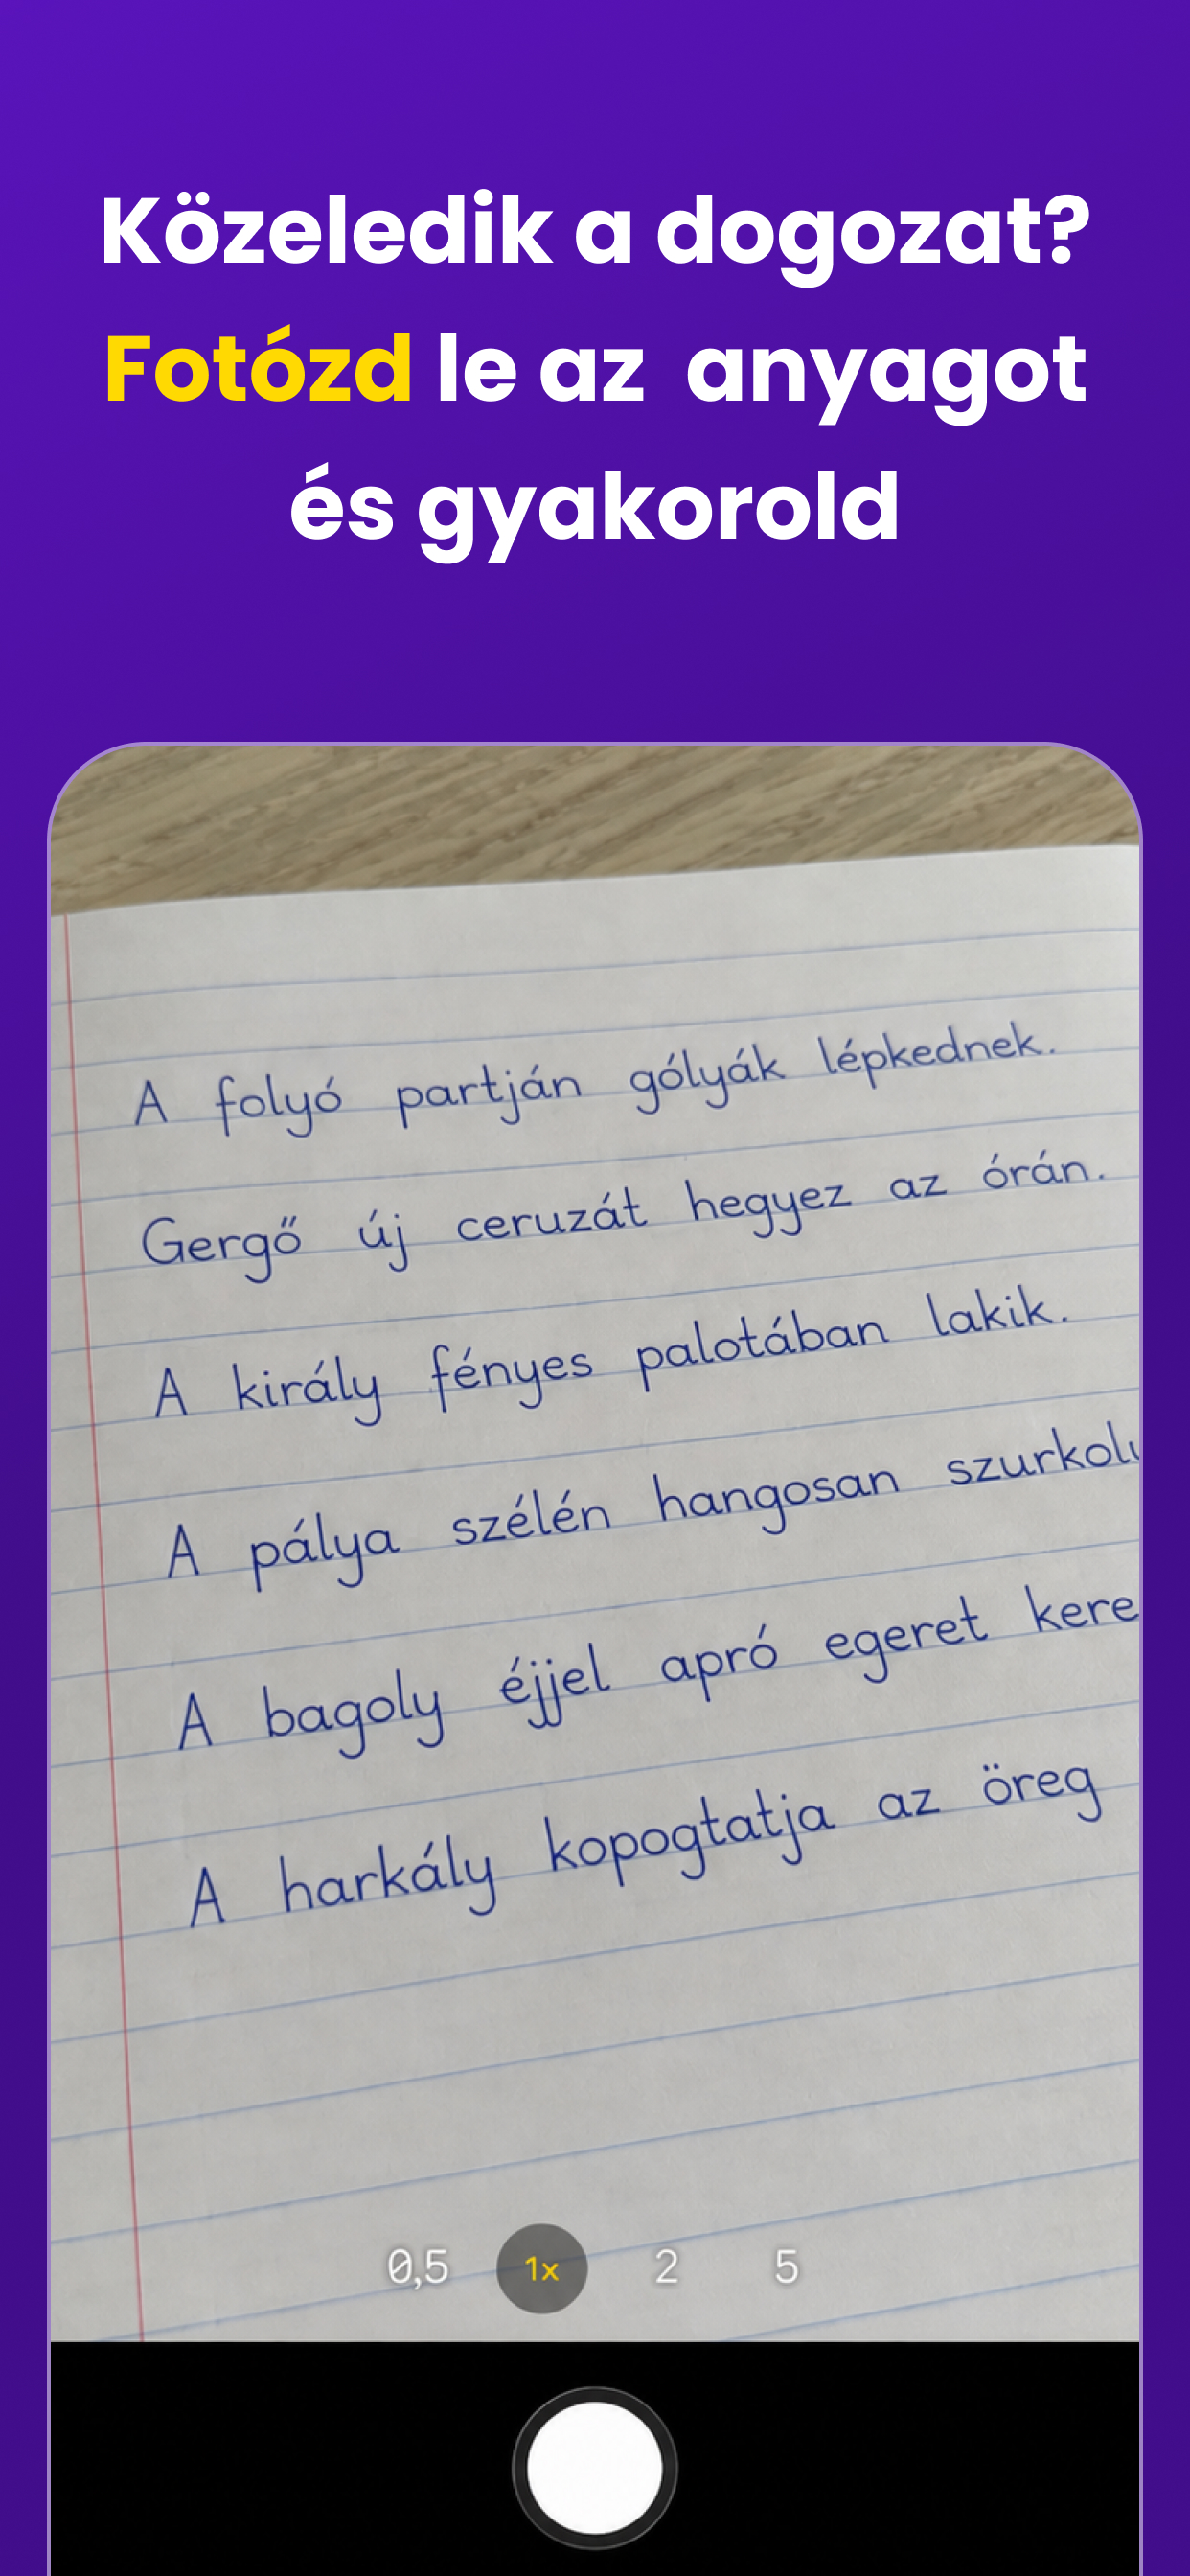 Közeledik a dogozat?
Fotózd le az anyagot
és gyakorold
A folyó partján gólyák lépkednek.
Gergő új ceruzát hegyez az órán.
A király fényes palotában lakik.
A pálya szélén hangosan
A bagoly éjjel apró egeret
A harkály kopogtatja az öreg
0,5 1x 2 5